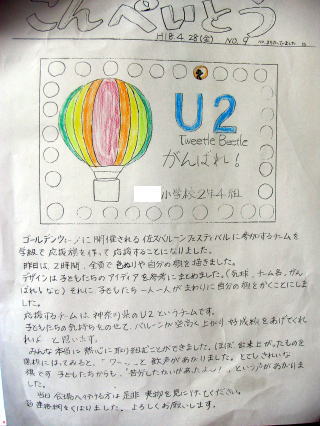 こんぺいとう
H18.4.28(金) NO.9
U2
Tweetle Beetle
がんばれ!
小学校2年4組
ゴールデンウィークに開催される佐久バルーンフェスティバルに参加するチームを
学級で応援旗を作って応援することになりました。
昨日は、2時間、全員で色ぬりや自分の顔を描きました。
デザインは子どもたちのアイディアを参考にまとめました。(気球、チーム名、がん
ばれ!など)それに子どもたち一人一人がまわりに自分の顔をかくことにしま
した。
応援するチームは神奈川県のU2というチームです。
子どもたちの気持ちものせて、バルーンが空高く上がり好成績をあげてくれ
れば と思います。
みんな本当に熱心に取り組むことができました。ほぼ出来上がったものを
黒板にはってみると、「ワーッ」と歓声があがりました。とてもきれいな
旗です。子どもたちからも、「苦労したかいがあったよ〜!」という声があがりま
した。
当日会場へ行ける方は是非実物を見つけてください。
よろしくお願いします。